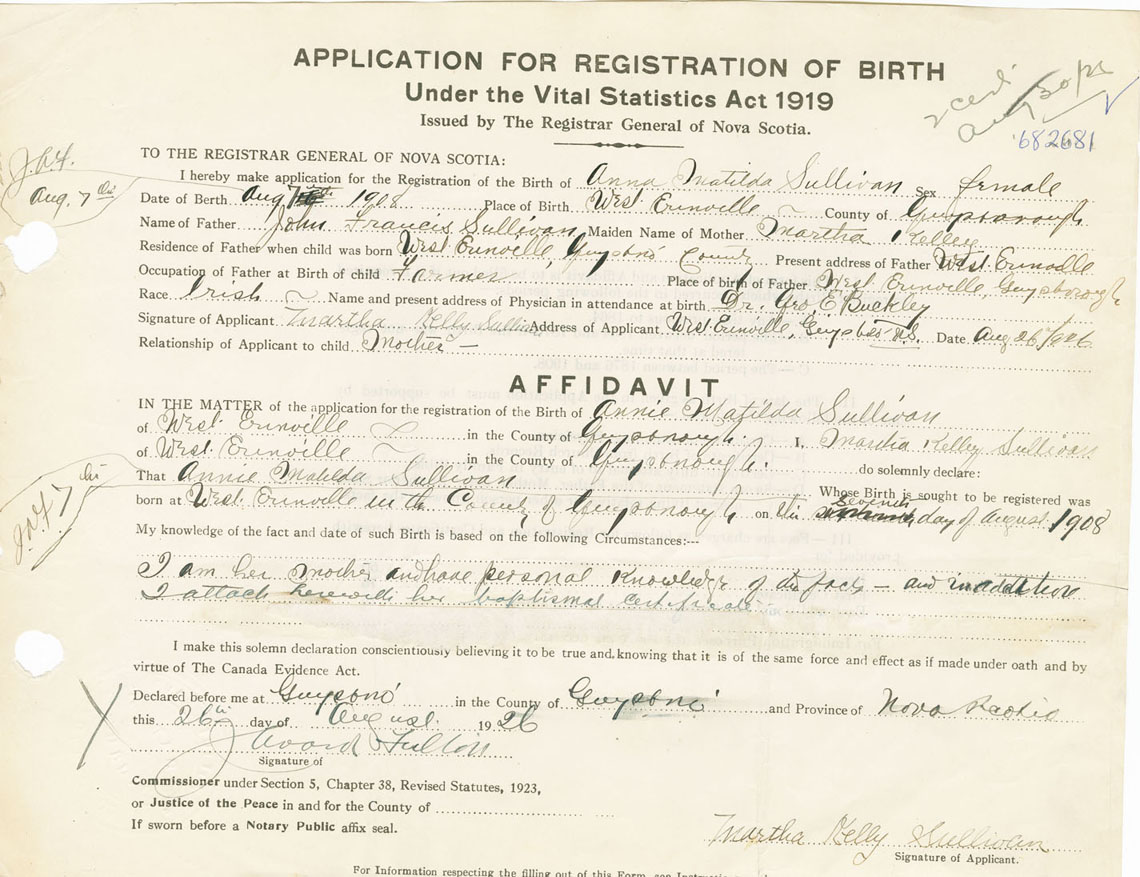 APPLICATION FOR REGISTRATION OF BIRTH
Under the Vital Statistics Act 1919
Issued by The Registrar General of Nova Scotia.
2 cert.
Aug 30/26
682681
TO THE REGISTRAR GENERAL OF NOVA SCOTIA:
I hereby make application for the Registration of the Birth of Anna Matilda Sullivan Sex female
Aug. 7th
Date of Berth Aug 7th 1908 Place of Birth West Erinville County of Guysborough
Name of Father John Francis Sullivan Maiden Name of Mother Martha Kelley
Residence of Father when child was born West Erinville, Guysboro County Present address of Father West Erinville
Occupation of Father at Birth of child Farmer Place of birth of Father West Erinville, Guysborough
Race Irish Name and present address of Physician in attendance at birth Dr. Geo. E. Buckley
Signature of Applicant Martha Kelly Sullivan Address of Applicant West Erinville, Guysboro N.S. Date Aug 26/1926
Relationship of Applicant to child Mother
AFFIDAVIT
IN THE MATTER of the application for the registration of the Birth of Annie Matilda Sullivan
of West Erinville in the County of Guysborough. I, Martha Kelley Sullivan
of West Erinville in the County of Guysborough. do solemnly declare:
That Annie Matilda Sullivan Whose Birth is sought to be registered was
born at West Erinville in the County of Guysborough on the seventh day of August 1908
My knowledge of the fact and date of such Birth is based on the following Circumstances:--
I am her mother and have personal knowledge of the fact – and in addition
I attach herewith her baptismal certificate
I make this solemn declaration conscientiously believing it to be true and knowing that it is of the same force and effect as if made under oath and by
virtue of The Canada Evidence Act.
Declared before me at Guysboro' in the County of Guysboro' and Province of Nova Scotia
this 26th day of August 1926
Avard Fulton
Signature of
Commissioner under Section 5, Chapter 38, Revised Statutes, 1923,
or Justice of the Peace in and for the County of
If sworn before a Notary Public affix seal.
Martha Kelly Sullivan
Signature of Applicant.
For Information respecting the filling out of this Form, see